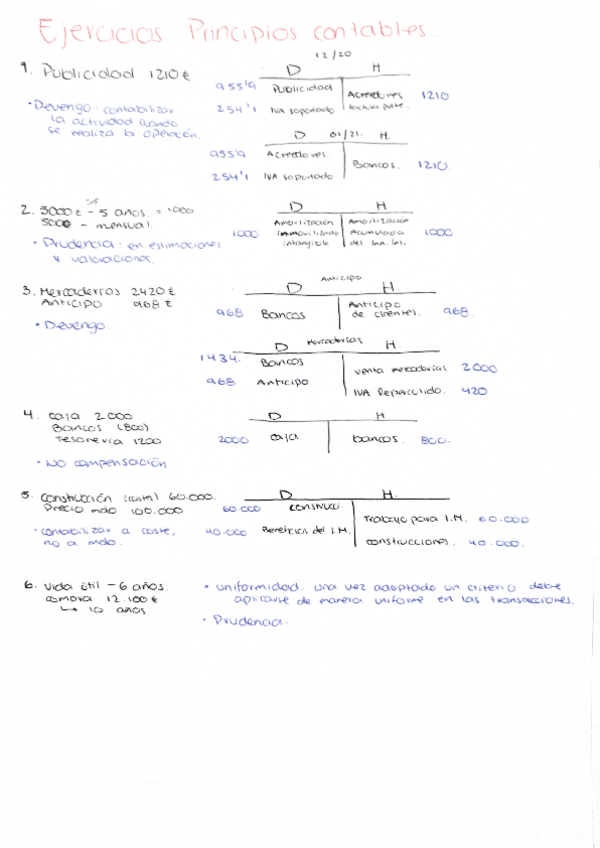 Ejercicios Principios contables.
12/20
1. Publicidad 1210€
D H
955'9 Publicidad Acreedores 1210
254'1 IVA soportado
• Devengo: contabilizar
la actividad cuando
se realiza la operación.
D 01/21. H.
955'9 Acreedores. Bancos. 1210.
254'1 IVA soportado
2. 5000€ - 5 años. = 1000
5000 - mensual.
• Prudencia: en estimaciones
y valoraciones.
D H
1000 Amortización Amortización 1000
inmovilizado Acumulada
intangible del Inm. Int.
3. Mercaderías 2420€
Anticipo 968€
• Devengo.
Anticipo
D H
968 Bancos Anticipo 968.
de clientes.
D Mercaderías H.
1434. Bancos venta mercaderías 2000
968 Anticipo. IVA Repercutido. 420
4. caja 2.000
Bancos (800)
Tesorería 1200
• NO compensación
D H
2000 caja bancos. 800.
5. Construcción (coste) 60.000.
Precio mdo 100.000
• contabilizar a coste,
no a mdo.
D H.
60.000 construcc. Trabajo para I.M. 60.000
40.000 Beneficios del I.M. construcciones. 40.000.
6. Vida útil - 6 años.
compra 12.100€
↳ 10 años
• uniformidad. una vez adoptado un criterio debe
aplicarse de manera uniforme en las transacciones.
• Prudencia.